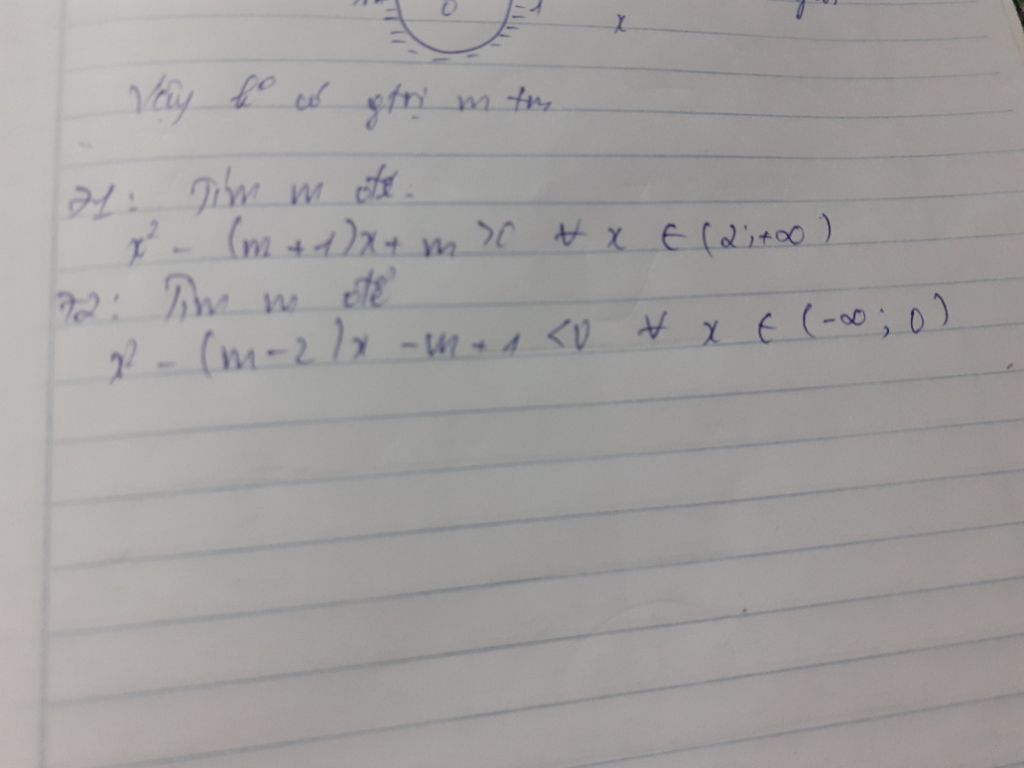 0
1
x
Vậy k° có gtrị m tm
71: Tìm m để:
x² - (m + 1)x + m > 0 ∀ x ∈ (2; +∞)
72: Tìm m để
x² - (m - 2)x - m + 1 < 0 ∀ x ∈ (-∞; 0)